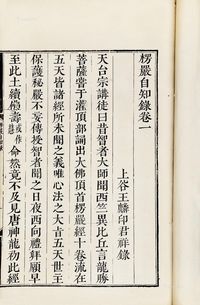 楞嚴自知錄卷一
上谷王麟印君祥錄
天台宗講徒曰昔智者大師聞西竺異比丘言龍勝
菩薩嘗于灌頂部詞出大佛頂首楞嚴經十卷流在
五天皆諸經所未聞之義唯心法之大旨五天世主
保護秘嚴不妄傳授智者聞之日夜西向禮拜願早
至此土續佛壽命然竟不及見唐神龍初此經